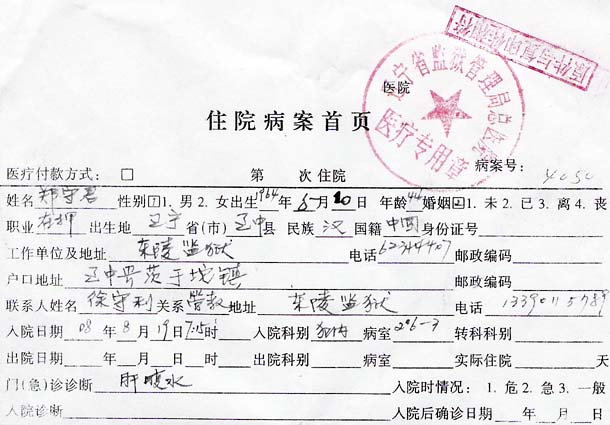 原件与复印件相符
辽宁省监狱管理局总医院
医疗专用章
医院
住院病案首页
医疗付款方式：□ 第 次住院 病案号：4050
姓名 郑守君 性别 1 1. 男 2. 女 出生 1964 年 6 月 10 日 年龄 44 婚姻 1. 未 2. 已 3. 离 4. 丧
职业 在押 出生地 辽宁 省(市) 辽中 县 民族 汉 国籍 中国 身份证号
工作单位及地址 监狱 电话 邮政编码
户口地址 辽中县茨于坨镇 邮政编码
联系人姓名 徐守利 关系 管教 地址 监狱 电话
入院日期 08 年 8 月 19 日 7:15 时 入院科别 病室 206-3 转科科别
出院日期 年 月 日 时 出院科别 病室 实际住院 天
门(急)诊诊断 肝腹水 入院时情况： 1. 危 2. 急 3. 一般
入院诊断 入院后确诊日期 年 月 日